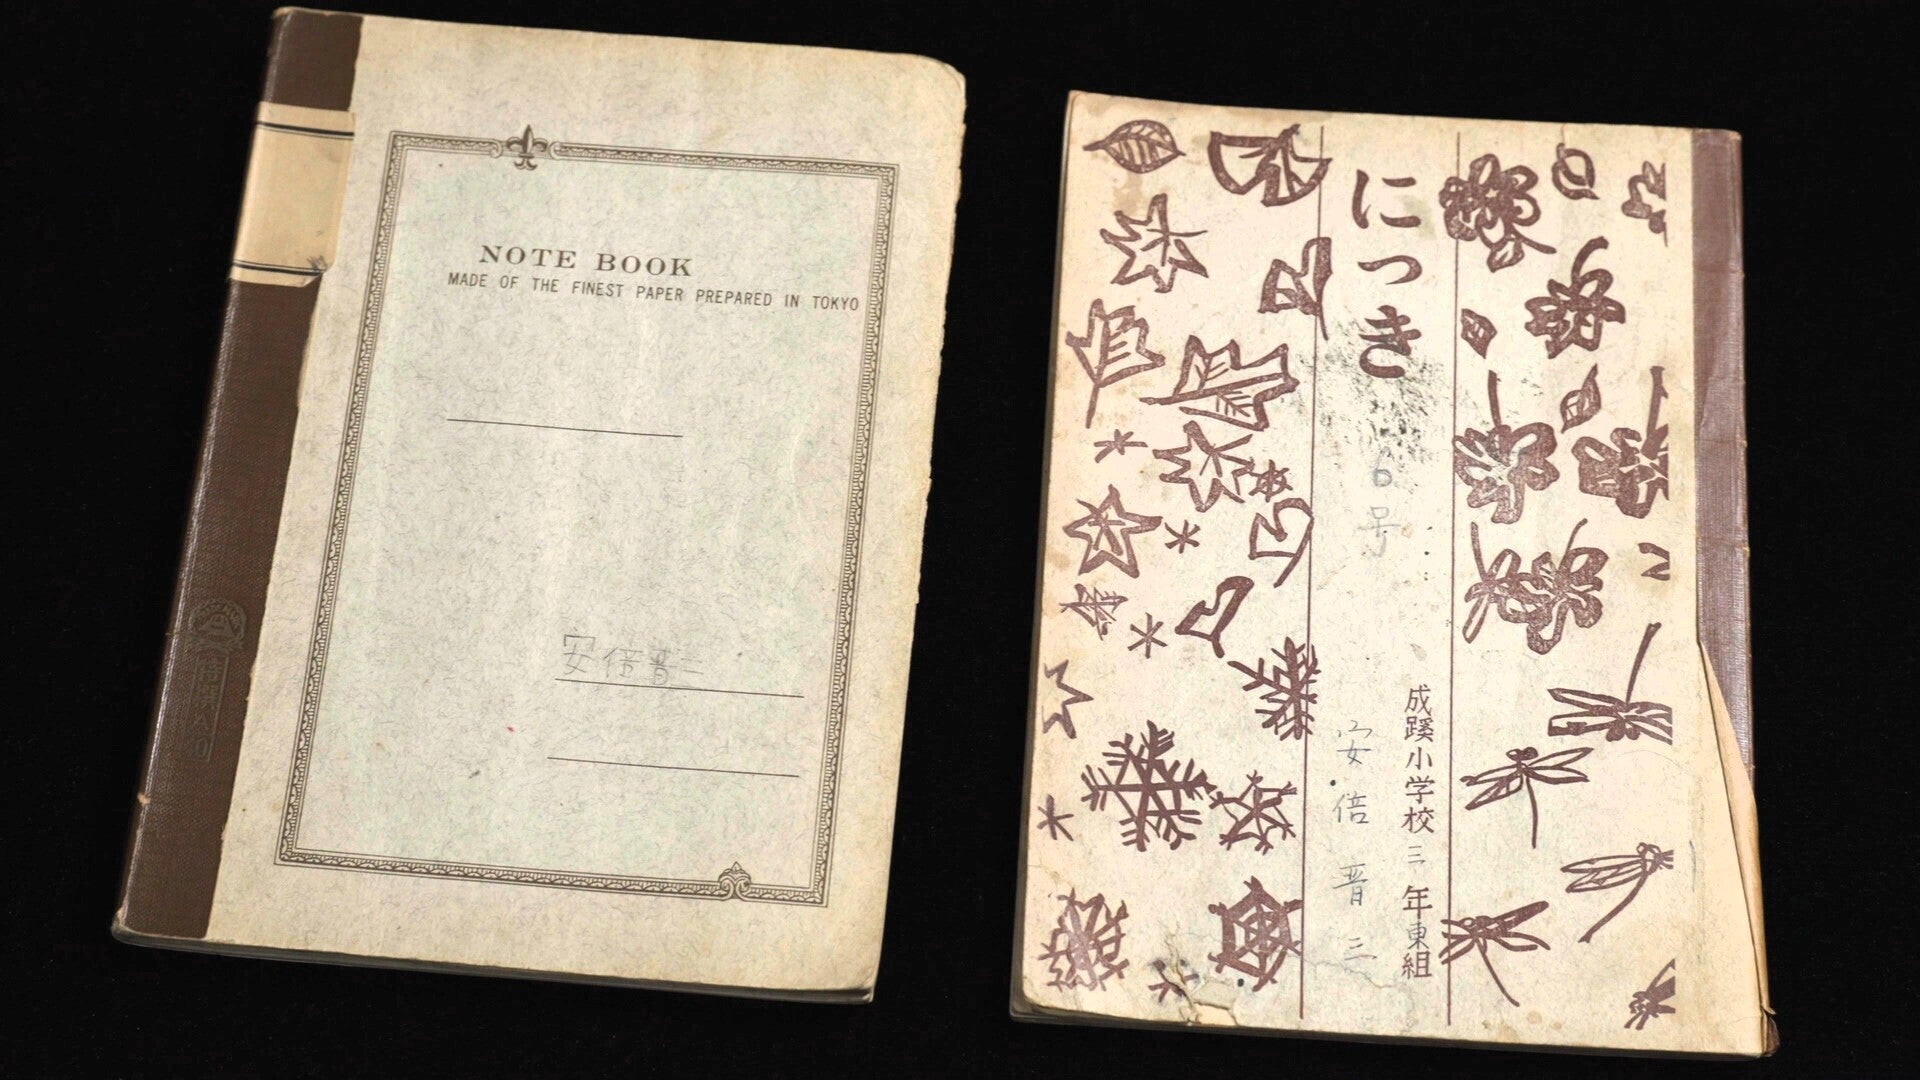 NOTE BOOK
MADE OF THE FINEST PAPER PREPARED IN TOKYO
安倍晋三
特選
にっき
6号
成蹊小学校三年東組
安倍晋三